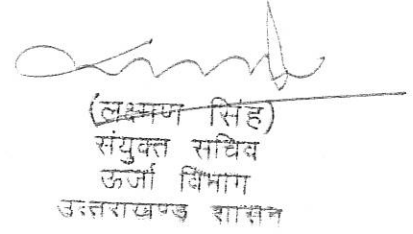 (लक्ष्मण सिंह)
संयुक्त सचिव
ऊर्जा विभाग
उत्तराखण्ड शासन